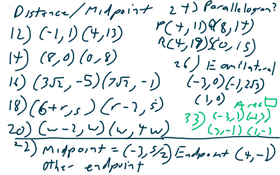 Distance / Midpoint
12) (-1, 1) (4, 13)
14) (8, 0) (0, 8)
16) (3√2, -5) (7√2, -1)
18) (6+r, s) (r-2, s)
20) (w-2, w) (w, 4w)
22) Midpoint = (-3, 5/2) Endpoint (4, -1)
other endpoint
24) Parallelogram?
P(4, 11) Q(8, 14)
R(4, 18) S(0, 15)
26) Equilateral
(-3, 0) (-1, 2√3)
(1, 0)
Area □
33) (-3, 1)
(3, -1) (1, -1)